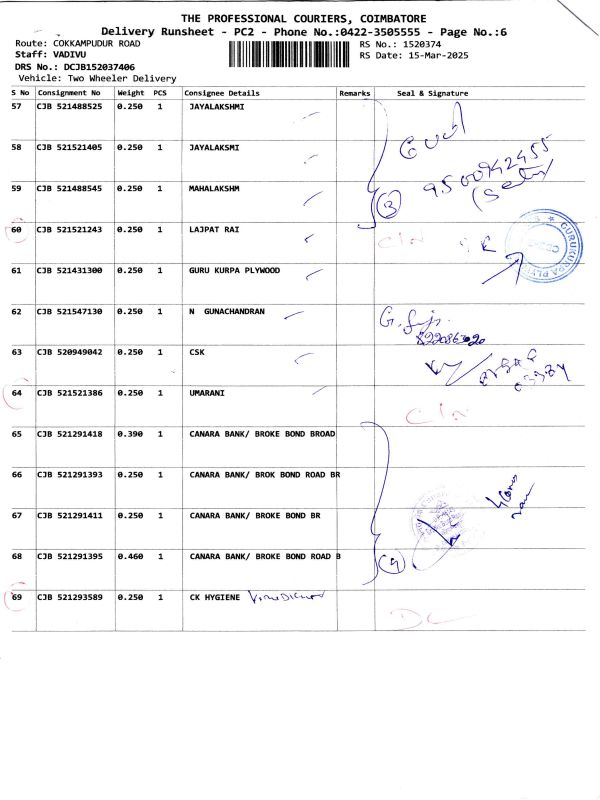 THE PROFESSIONAL COURIERS, COIMBATORE
Delivery Runsheet - PC2 - Phone No.:0422-3505555 - Page No.:6
Route: COKKAMPUDUR ROAD
RS No.: 1520374
Staff: VADIVU
RS Date: 15-Mar-2025
DRS No.: DCJB152037406
Vehicle: Two Wheeler Delivery
S No Consignment No Weight PCS Consignee Details Remarks Seal & Signature
57 CJB 521488525 0.250 1 JAYALAKSHMI
58 CJB 521521405 0.250 1 JAYALAKSMI
9500942455
59 CJB 521488545 0.250 1 MAHALAKSHM
3
60 CJB 521521243 0.250 1 LAJPAT RAI
C/N
61 CJB 521431300 0.250 1 GURU KURPA PLYWOOD
62 CJB 521547130 0.250 1 N GUNACHANDRAN
8220863020
63 CJB 520949042 0.250 1 CSK
64 CJB 521521386 0.250 1 UMARANI
C/N
65 CJB 521291418 0.390 1 CANARA BANK/ BROKE BOND BROAD
66 CJB 521291393 0.250 1 CANARA BANK/ BROK BOND ROAD BR
67 CJB 521291411 0.250 1 CANARA BANK/ BROKE BOND BR
68 CJB 521291395 0.460 1 CANARA BANK/ BROKE BOND ROAD B
4
69 CJB 521293589 0.250 1 CK HYGIENE
DC